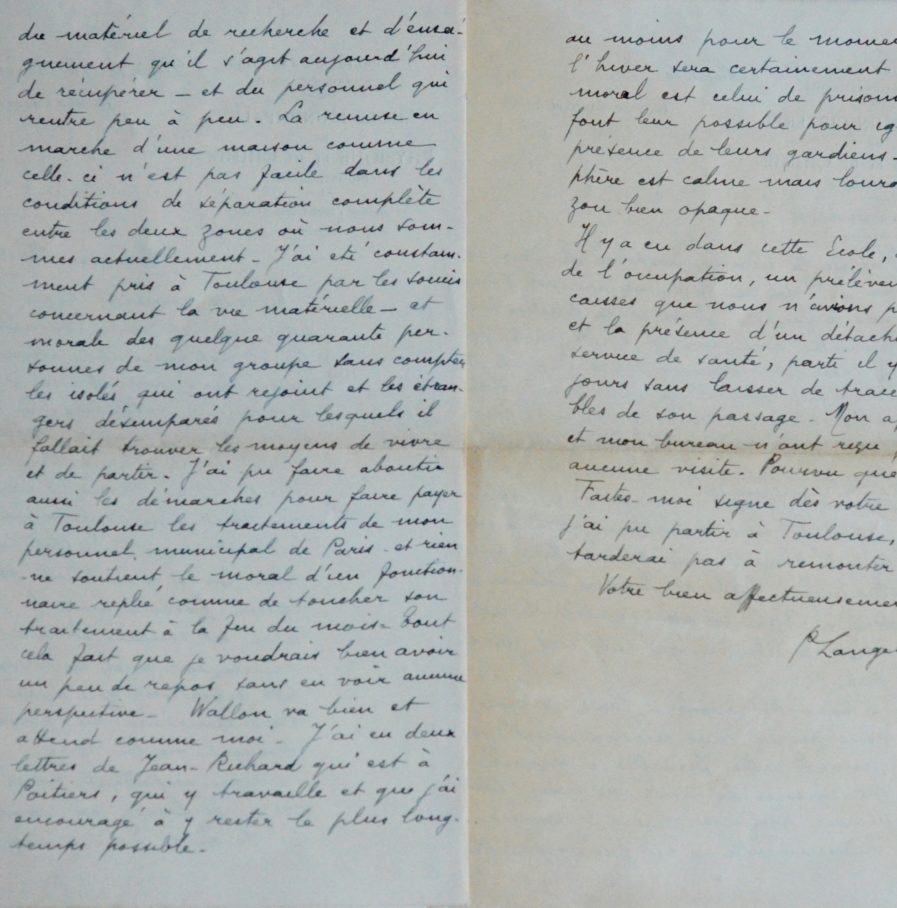 du matériel de recherche et d'ensei-
gnement qu'il s'agit aujourd'hui
de récupérer - et du personnel qui
rentre peu à peu. La remise en
marche d'une maison comme
celle-ci n'est pas facile dans les
conditions de séparation complète
entre les deux zones où nous som-
mes actuellement - J'ai été constam-
ment pris à Toulouse par les soucis
concernant la vie matérielle - et
morale des quelque quarante per-
sonnes de mon groupe sans compter
les isolés qui ont rejoint et les étran-
gers désemparés pour lesquels il
fallait trouver les moyens de vivre
et de partir. J'ai pu faire aboutir
aussi les démarches pour faire payer
à Toulouse les traitements de mon
personnel municipal de Paris - et rien
ne soutient le moral d'un fonction-
naire replié comme de toucher son
traitement à la fin du mois - Tout
cela fait que je voudrais bien avoir
un peu de repos sans en voir aucune
perspective - Wallon va bien et
attend comme moi - J'ai eu deux
lettres de Jean-Richard qui est à
Poitiers, qui y travaille et que j'ai
encouragé à y rester le plus long-
temps possible -
au moins pour le momen
l'hiver sera certainement
moral est celui de prison
font leur possible pour ig
présence de leurs gardiens -
phère est calme mais lourd
zon bien opaque -
Il y a eu dans cette Ecole,
de l'occupation, un prélève
caisses que nous n'avions p
et la présence d'un détach
service de santé, parti il y
jours sans laisser de trace
bles de son passage - Mon a
et mon bureau n'ont reçu
aucune visite. Pourvu que
Faites-moi signe dès votre
j'ai pu partir à Toulouse,
tarderai pas à remonter
Votre bien affectueuseme
P Lange